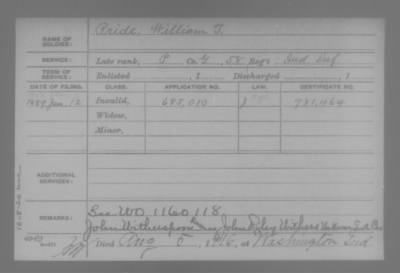 NAME OF SOLDIER: Pride, William T.
SERVICE: Late rank, P Co. G, 58 Reg't Ind. Inf.
TERM OF SERVICE: Enlisted , 1 Discharged , 1
DATE OF FILING. CLASS. APPLICATION NO. LAW. CERTIFICATE NO.
1889 Jan. 12 Invalid, 685,010 J 781,464
Widow,
Minor,
ADDITIONAL SERVICES:
REMARKS: See WO 1160118
John Witherspoon John Riley Withers
Died Aug 5, 1916, at Washington Ind